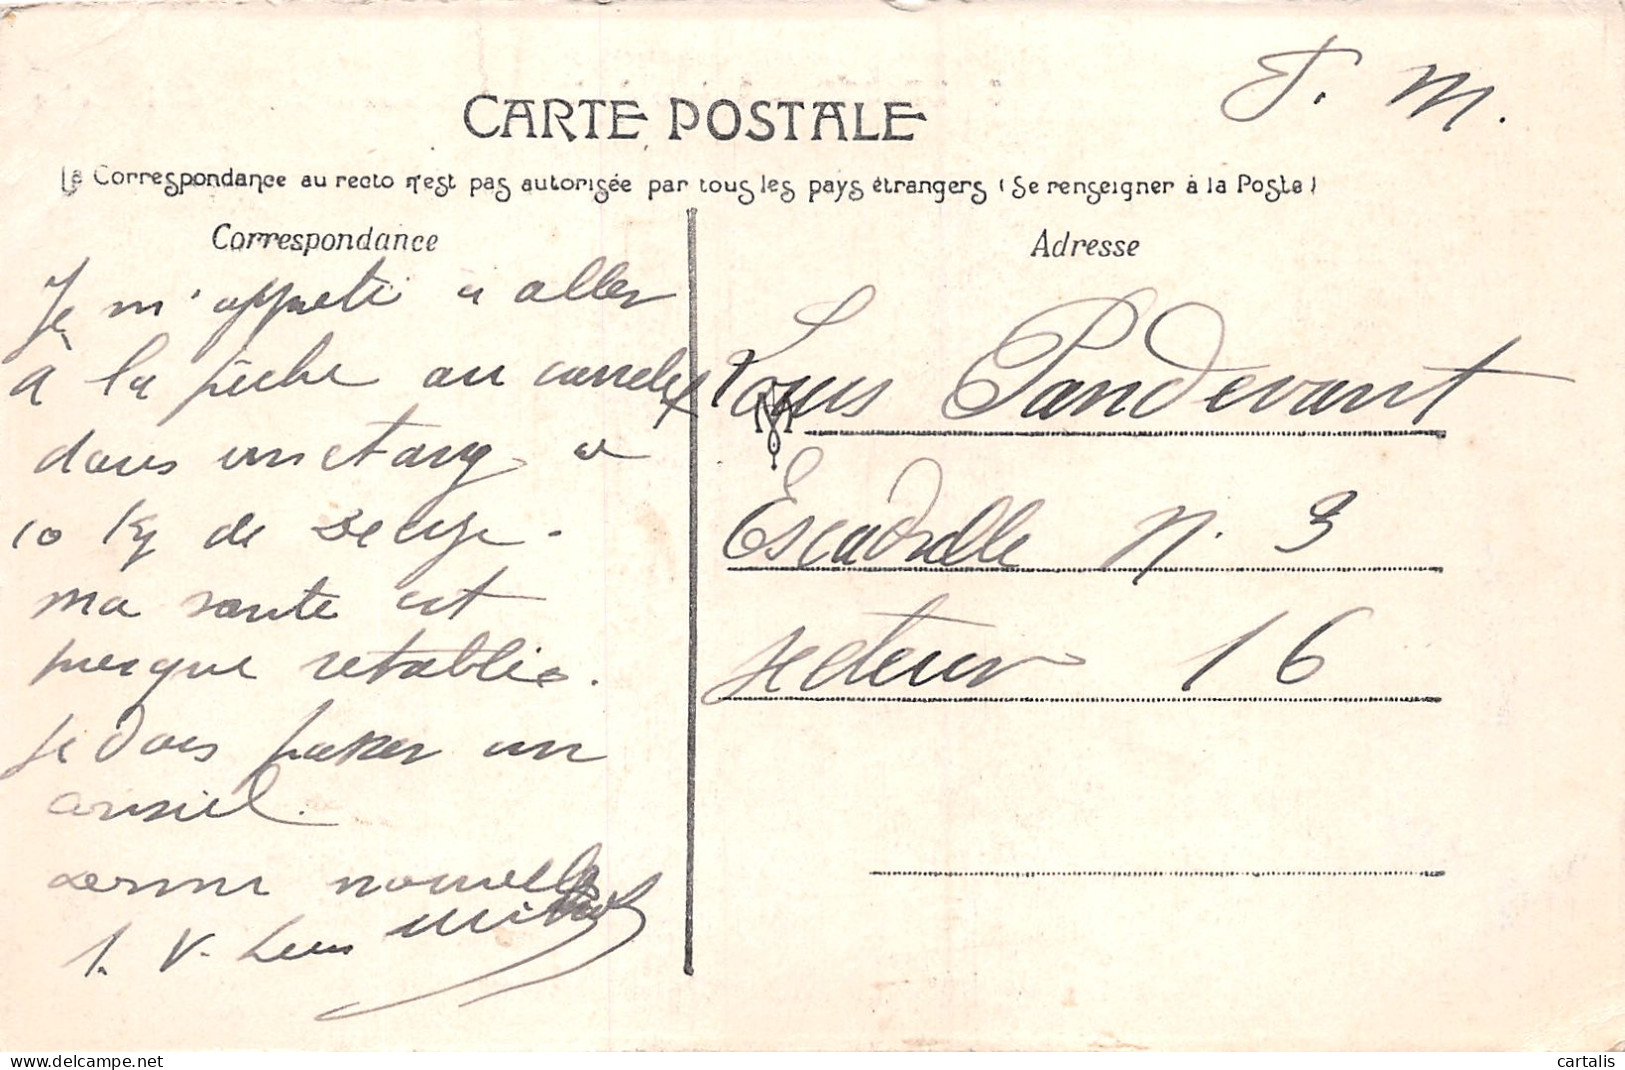 F. M.
CARTE POSTALE
La Correspondance au recto n'est pas autorisée par tous les pays étrangers (Se renseigner à la Poste)
Correspondance
Je m'apprete a aller
a la pêche au
dans un etang a
10 kg de
ma sante est
presque retablie.
je dois passer un
conseil.
donne nouvelle
Adresse
Louis Pandevant
Escadrille N. 3
secteur 16
cartalis
delcampe.net